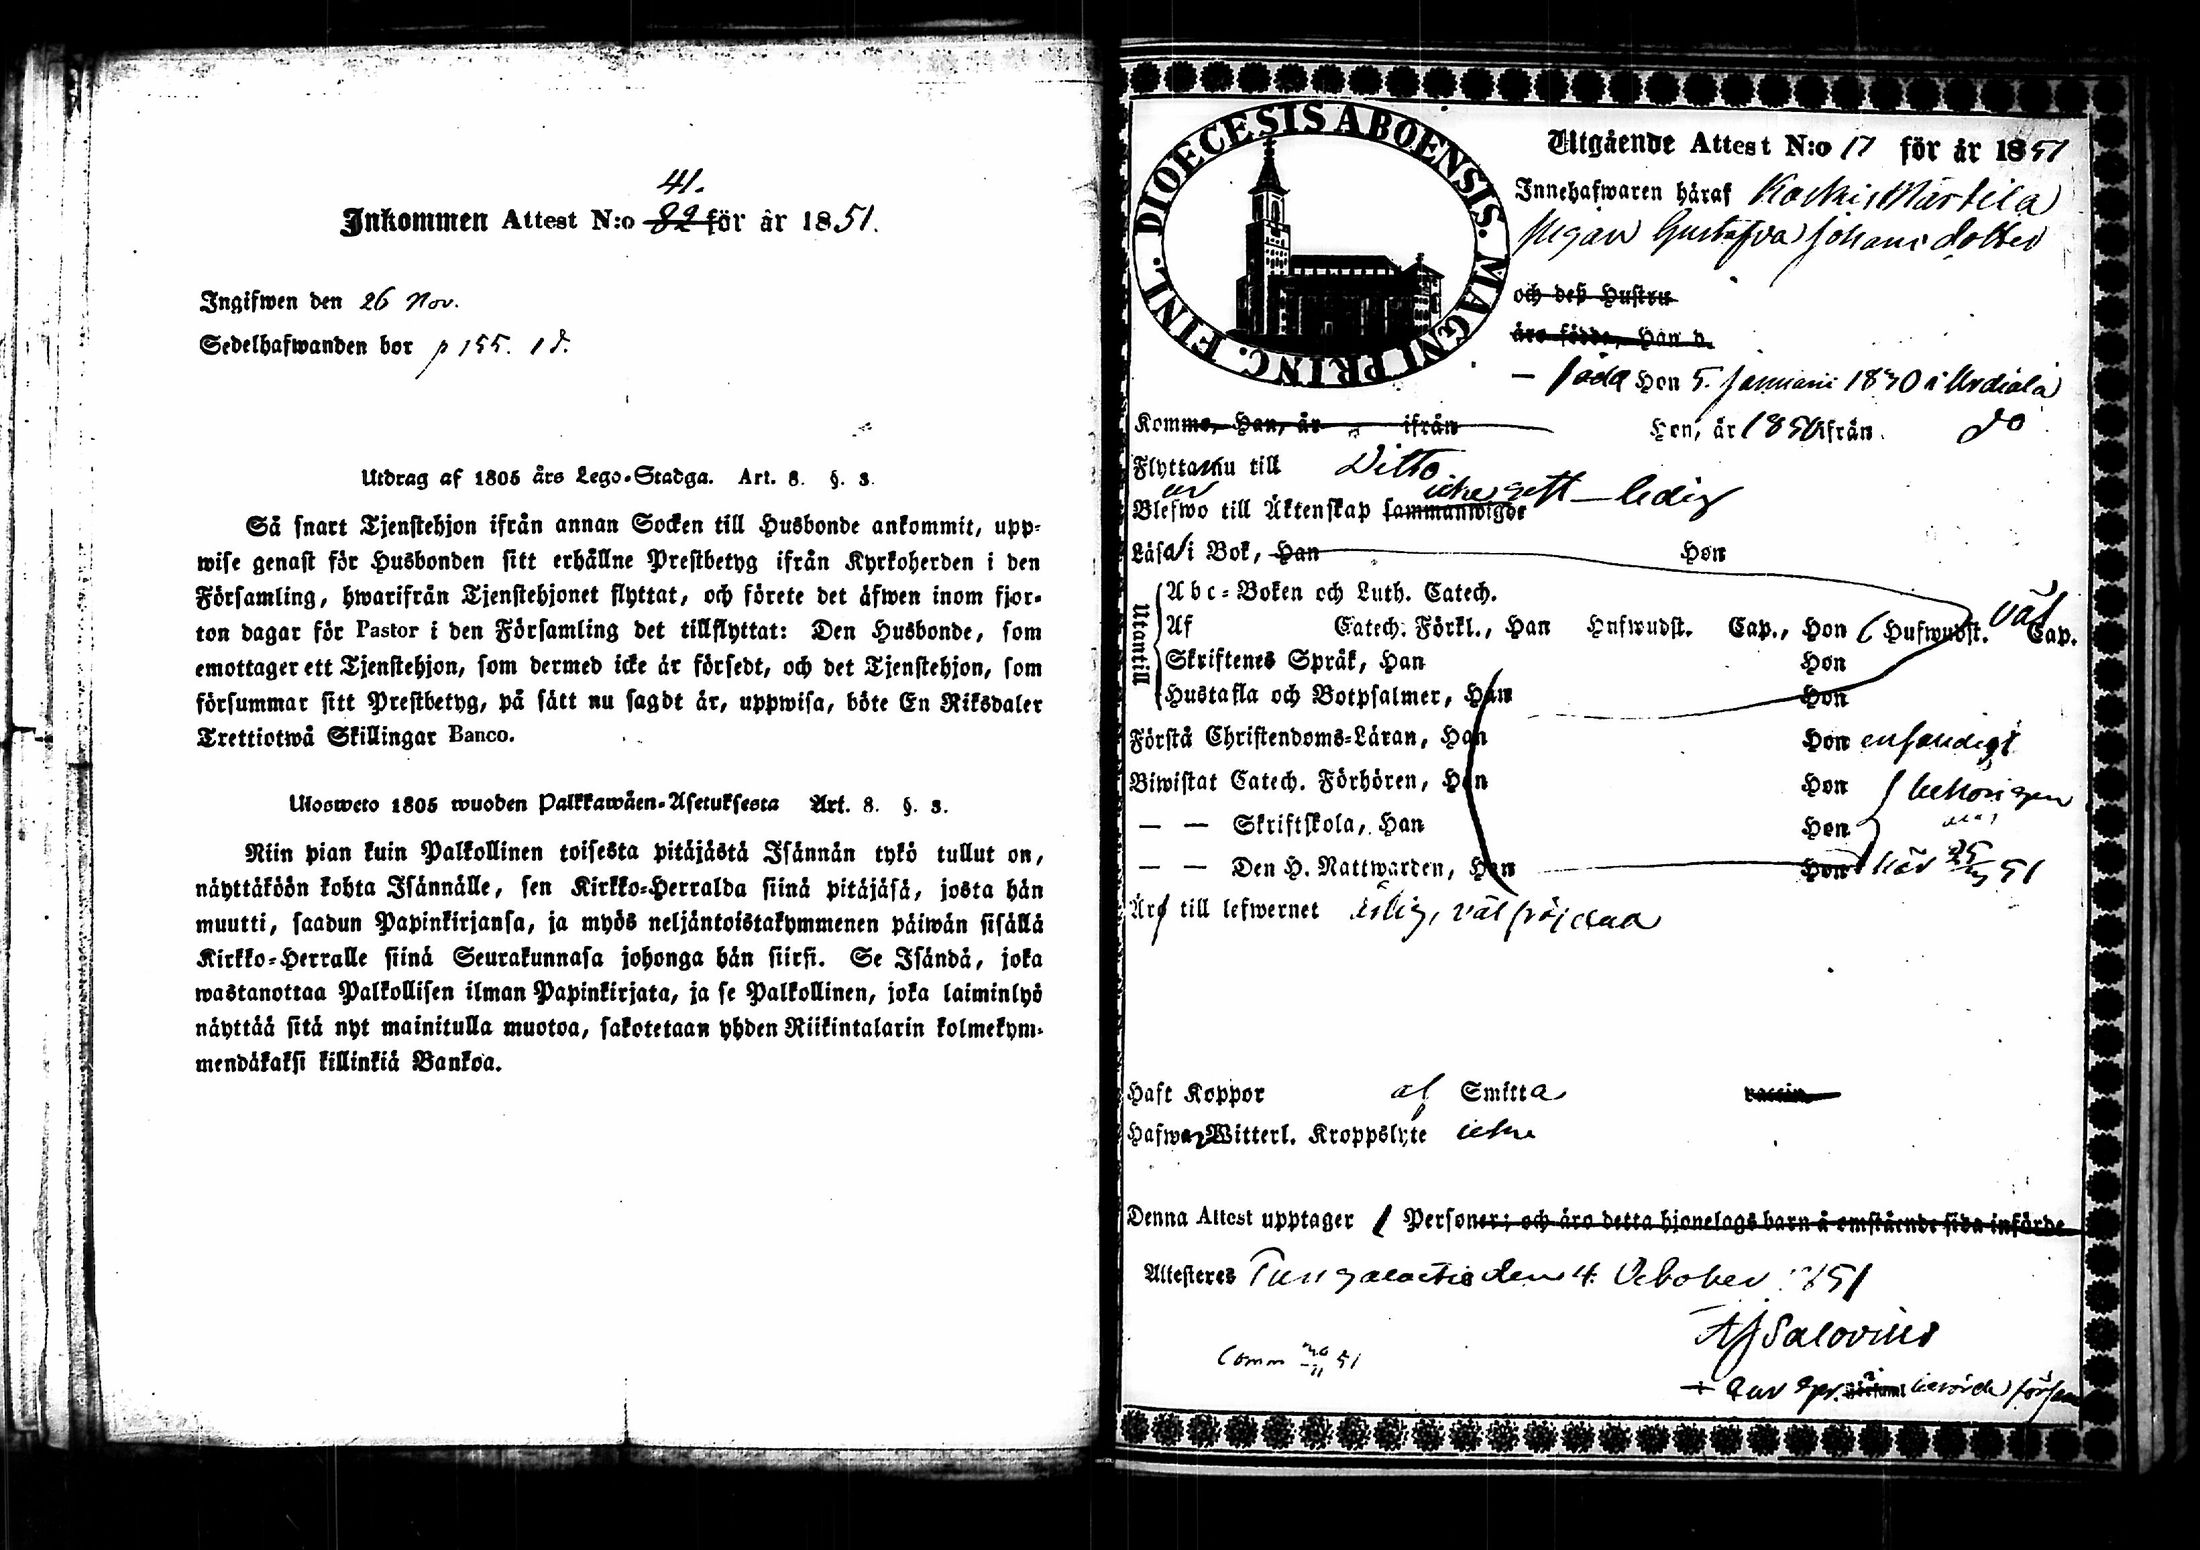 41.
Inkommen Attest N:o 82 för år 1851.
Ingifwen den 26 Nov.
Sedelhafwanden bor p 155. 1 d.
Utdrag af 1805 års Lego-Stadga. Art. 8. §. 3.
Så snart Tjenstehjon ifrån annan Socken till Husbonde ankommit, upp-
wise genast för Husbonden sitt erhållne Prestbetyg ifrån Kyrkoherden i den
Församling, hwarifrån Tjenstehjonet flyttat, och förete det äfwen inom fjor-
ton dagar för Pastor i den Församling det tillflyttat: Den Husbonde, som
emottager ett Tjenstehjon, som dermed icke är försedt, och det Tjenstehjon, som
försummar sitt Prestbetyg, på sätt nu sagdt är, uppwisa, böte En Riksdaler
Trettiotwå Skillingar Banco.
Ulosweto 1805 wuoden Palkkawäen-Asetuksesta Art. 8. §. 3.
Niin pian kuin Palkollinen toisesta pitäjästä Isännän tykö tullut on,
näyttäköön kohta Isännälle, sen Kirkko-Herralda siinä pitäjäsä, josta hän
muutti, saadun Papinkirjansa, ja myös neljäntoistakymmenen päiwän sisällä
Kirkko-Herralle siinä Seurakunnasa johonga hän siirsi. Se Isändä, joka
wastanottaa Palkollisen ilman Papinkirjata, ja se Palkollinen, joka laiminlyö
näyttää sitä nyt mainitulla muotoa, sakotetaan yhden Riikintalarin kolmekym-
mendäkaksi killinkiä Bankoa.
DIOECESIS ABOENSIS. MAGNI PRINC. FINL.
Utgående Attest N:o 17 för år 1851
Innehafwaren häraf Koskis Märtila
Pigan Gustafva Johans dotter
och deß Hustru
äro födde, Han d.
— född Hon 5. Januarii 1830 i Urdiala
Komme, Han, år ifrån Hon, år 1850 ifrån do
Flyttar nu till Ditto
är icke gift — ledig
Blefwo till Äktenskap sammanwigde
Läsa i Bok, Han Hon
Utantill
Abc-Boken och Luth. Catech. väl
Af Catech. Förkl., Han Hufwudst. Cap., Hon Hufwudst. Cap.
Skriftenes Språk, Han Hon
Hustafla och Botpsalmer, Han Hon
Förstå Christendoms-Läran, Han Hon enfaldigt
Biwistat Catech. Förhören, Han Hon behörigen
— — Skriftskola, Han Hon
— — Den H. Nattwarden, Han Hon här 51
Äro till lefwernet ärlig, väl fräjdad
Haft Koppor af Smitta vaccin
Hafwa Witterl. Kroppslyte icke
Denna Attest upptager 1 Personer; och äro detta hjonelags barn å omstående sida införde
Attesteres den 4. October 1851
AfSalovius
Comm 30/11 51